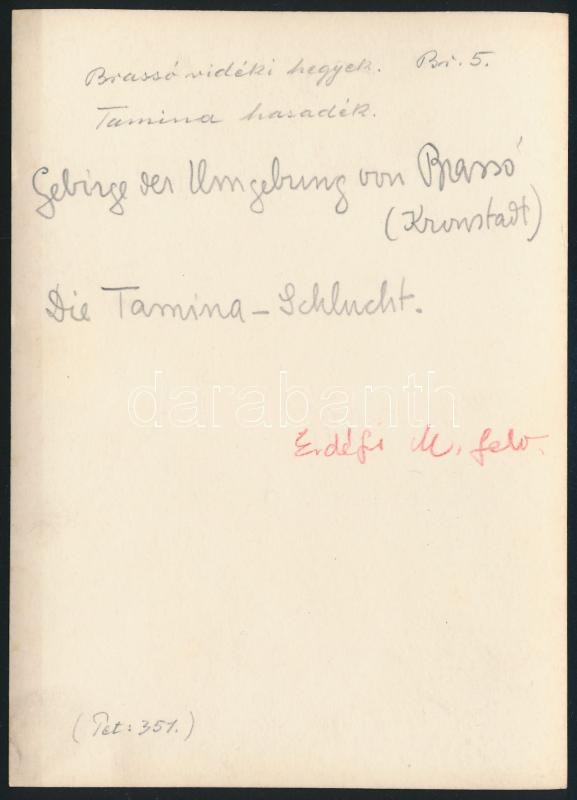 Brassó vidéki hegyek. Br. 5.
Tamina hasadék.
Gebirge der Umgebung von Brassó
(Kronstadt)
Die Tamina-Schlucht.
darabanth
Erdéfi M. felv.
(Tct: 351.)